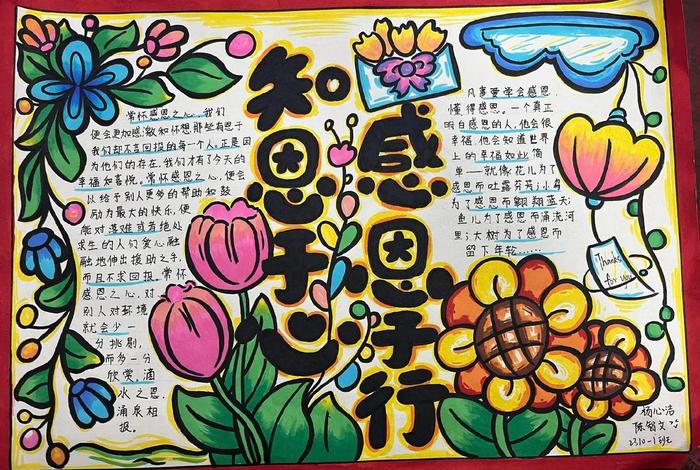 知恩于心
感恩于行
常怀感恩之心,我们
便会更加感激和怀想那些有恩于
我们却不言回报的每一个人。正是因
为他们的存在,我们才有了今天的
幸福和喜悦。常怀感恩之心,便会
以给予别人更多的帮助和鼓
励为最大的快乐,便
能对落难或者绝处
求生的人们爱心融
融地伸出援助之手,
而且不求回报。常怀
感恩之心,对
别人对环境
就会少一
分挑剔,
而多一分
欣赏。滴
水之恩,
涌泉相
报。
凡事要学会感恩,
懂得感恩。一个真正
明白感恩的人,他会很
幸福,他会知道世界
上的幸福如此简
单——就像花儿为了
感恩而吐露芬芳;小鸟
为了感恩而翱翔蓝天;
鱼儿为了感恩而涌流河
里;大树为了感恩而
留下年轮……
Thanks
for you
杨心洁
陈智文
2310-1班